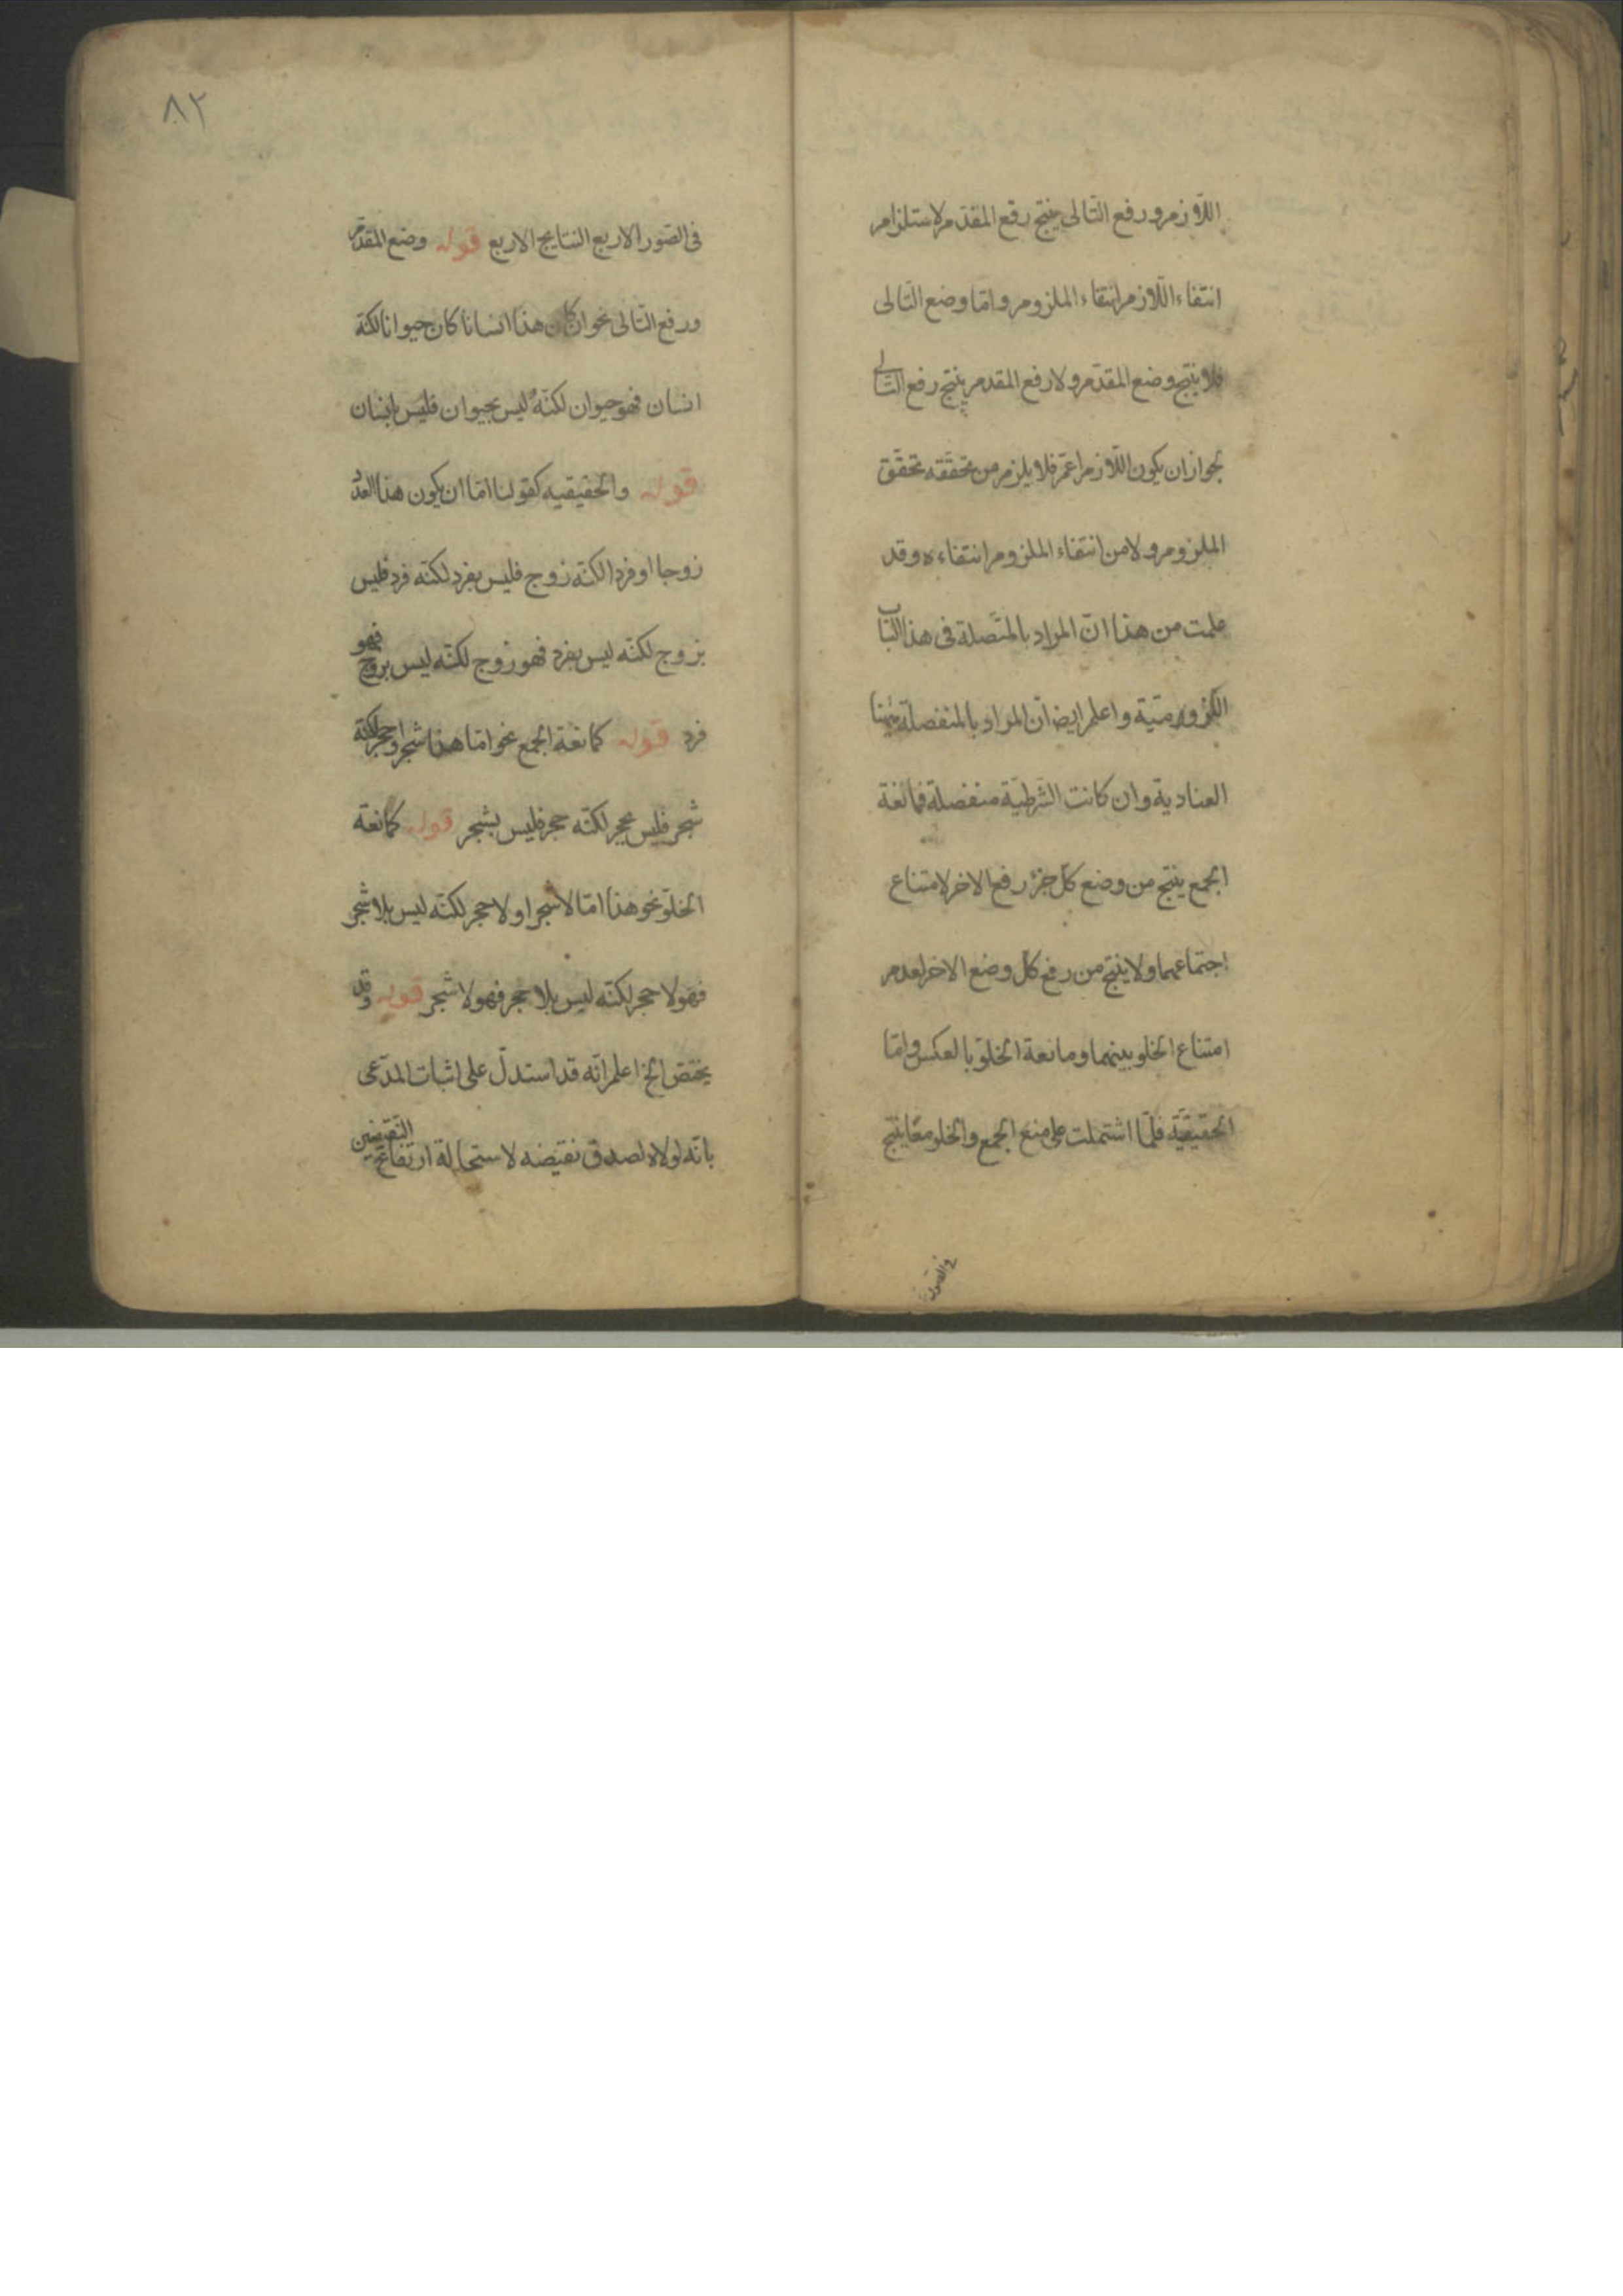 اللّازم ورفع التّالى ينتج رفع المقدّم لاستلزام
انتفاء اللّازم انتفاء الملزوم وامّا وضع التّالى
فلا ينتج وضع المقدّم ولا رفع المقدم ينتج رفع التّالى
لجواز ان يكون اللّازم اعمّ فلا يلزم من تحقّقه تحقّق
الملزوم ولا من انتفاء الملزوم انتفاءه وقد
علمت من هذا انّ المراد بالمتّصلة فى هذا الباب
اللّزوميّة واعلم ايضا انّ المراد بالمنفصلة ههنا
العنادية وان كانت الشّرطيّة منفصلة فمانعة
الجمع ينتج من وضع كلّ جزء رفع الاخر لامتناع
اجتماعهما ولا ينتج من رفع كلّ وضع الاخر لعدم
امتناع الخلو بينهما ومانعة الخلوّ بالعكس وامّا
الحقيقيّة فلمّا اشتملت على منع الجمع والخلو معًا ينتج
فى الصّور
٨٢
فى الصّور الاربع النتايج الاربع قوله وضع المقدّم
ورفع التّالى نحو ان كان هذا انسانا كان حيوانا لكنّه
انسان فهو حيوان لكنّه ليس بحيوان فليس بانسان
قوله والحقيقيه كقولنا امّا ان يكون هذا العدد
زوجا او فردا لكنّه زوج فليس بفرد لكنّه فرد فليس
بزوج لكنّه ليس بفرد فهو زوج لكنّه ليس بزوج فهو
فرد قوله كمانعة الجمع نحو امّا هذا شجر او حجر لكنّه
شجر فليس بحجر لكنّه حجر فليس بشجر قوله كمانعة
الخلوّ نحو هذا امّا لا شجر او لا حجر لكنّه ليس بلا شجر
فهو لا حجر لكنّه ليس بلا حجر فهو لا شجر قوله وقد
يختصّ الخ اعلم انّه قد استدلّ على اثبات المدّعى
بانّه لولاه لصدق نقيضه لاستحالة ارتفاع النّقيضين